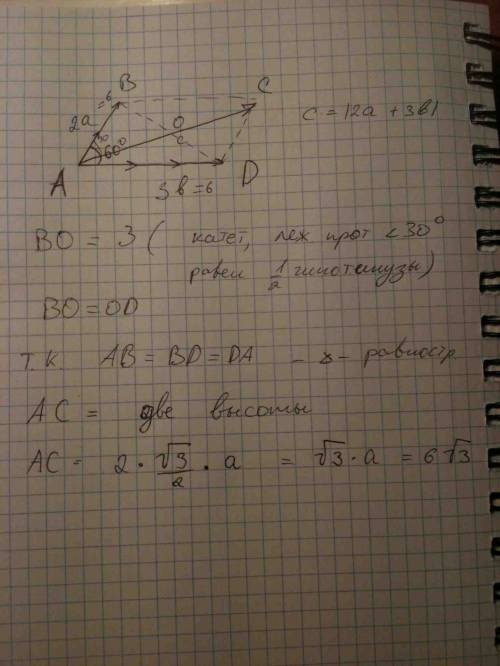 B
C
2a
=6
30
60°
O
c
A
D
3b = 6
c = |2a + 3b|
BO = 3 ( катет, леж прот < 30°
равен 1/2 гипотенузы)
BO = OD
т.к. AB = BD = DA – – равностр.
AC = две высоты
AC = 2 · √3/2 · a = √3 · a = 6√3